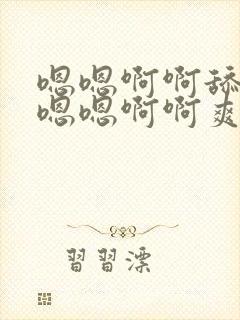 嗯嗯啊啊舔
嗯嗯啊啊爽
習習漂